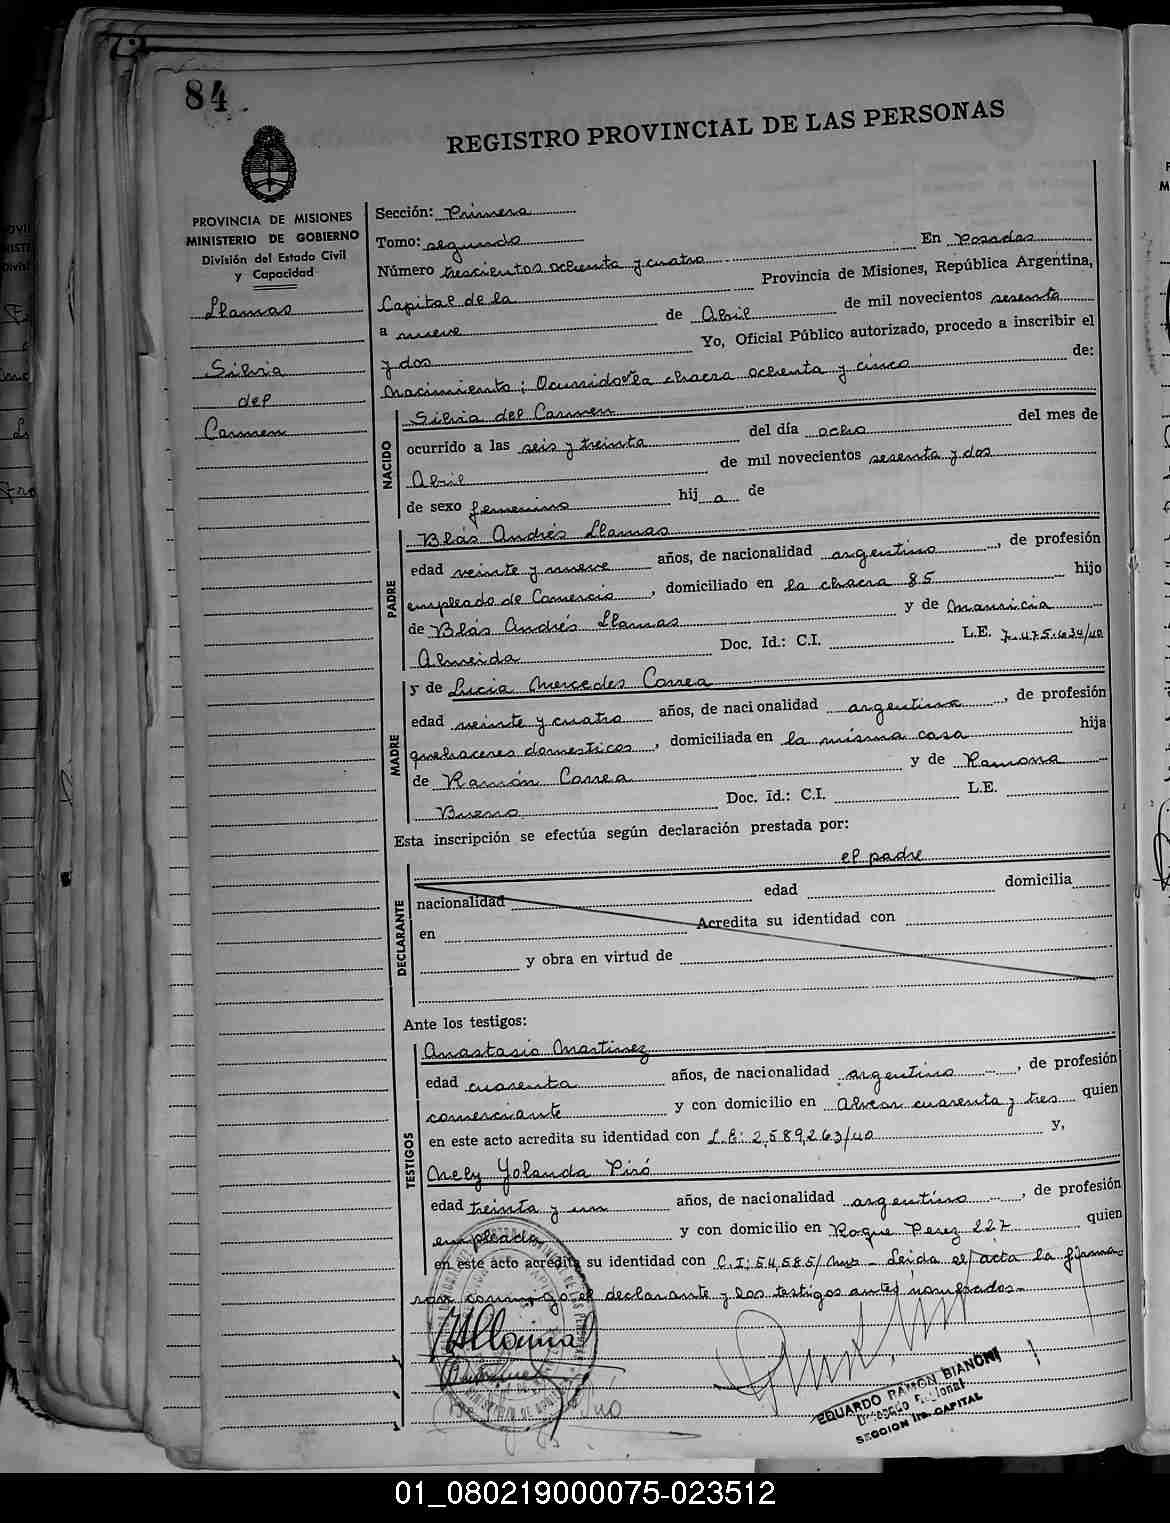 84
REGISTRO PROVINCIAL DE LAS PERSONAS
PROVINCIA DE MISIONES
MINISTERIO DE GOBIERNO
División del Estado Civil
y Capacidad
Llamas
Silvia
del
Carmen
Sección: Primera
Tomo: segundo
Número trescientos ochenta y cuatro En Posadas
Capital de la Provincia de Misiones, República Argentina,
a nueve de Abril de mil novecientos sesenta
y dos Yo, Oficial Público autorizado, procedo a inscribir el
Nacimiento; Ocurrido en la chacra ochenta y cinco de:
NACIDO
Silvia del Carmen
ocurrido a las seis y treinta del día ocho del mes de
Abril de mil novecientos sesenta y dos
de sexo femenino hij a de
PADRE
Blás Andrés Llamas
edad veinte y nueve años, de nacionalidad argentino, de profesión
empleado de Comercio, domiciliado en la chacra 85 hijo
de Blás Andrés Llamas y de Mauricia
Almeida Doc. Id.: C.I. L.E. 7.475.634/40
MADRE
y de Lucia Mercedes Correa
edad veinte y cuatro años, de nacionalidad argentina, de profesión
quehaceres domesticos, domiciliada en la misma casa hija
de Ramón Correa y de Ramona
Bueno Doc. Id.: C.I. L.E.
Esta inscripción se efectúa según declaración prestada por:
el padre
DECLARANTE
nacionalidad edad domicilia
en Acredita su identidad con
y obra en virtud de
Ante los testigos:
TESTIGOS
Anastasio Martinez
edad cuarenta años, de nacionalidad argentino, de profesión
comerciante y con domicilio en Alvear cuarenta y tres quien
en este acto acredita su identidad con L.E: 2,589,263/40 y,
Nely Yolanda Piró
edad treinta y un años, de nacionalidad argentino, de profesión
empleada y con domicilio en Roque Perez 227 quien
en este acto acredita su identidad con C.I: 54,585/ Mns - Leida el acta la firma-
ron conmigo el declarante y los testigos antes nombrados-
EDUARDO RAMON BIANCHI
Delegado Regional
SECCION 1ra. CAPITAL
01_080219000075-023512